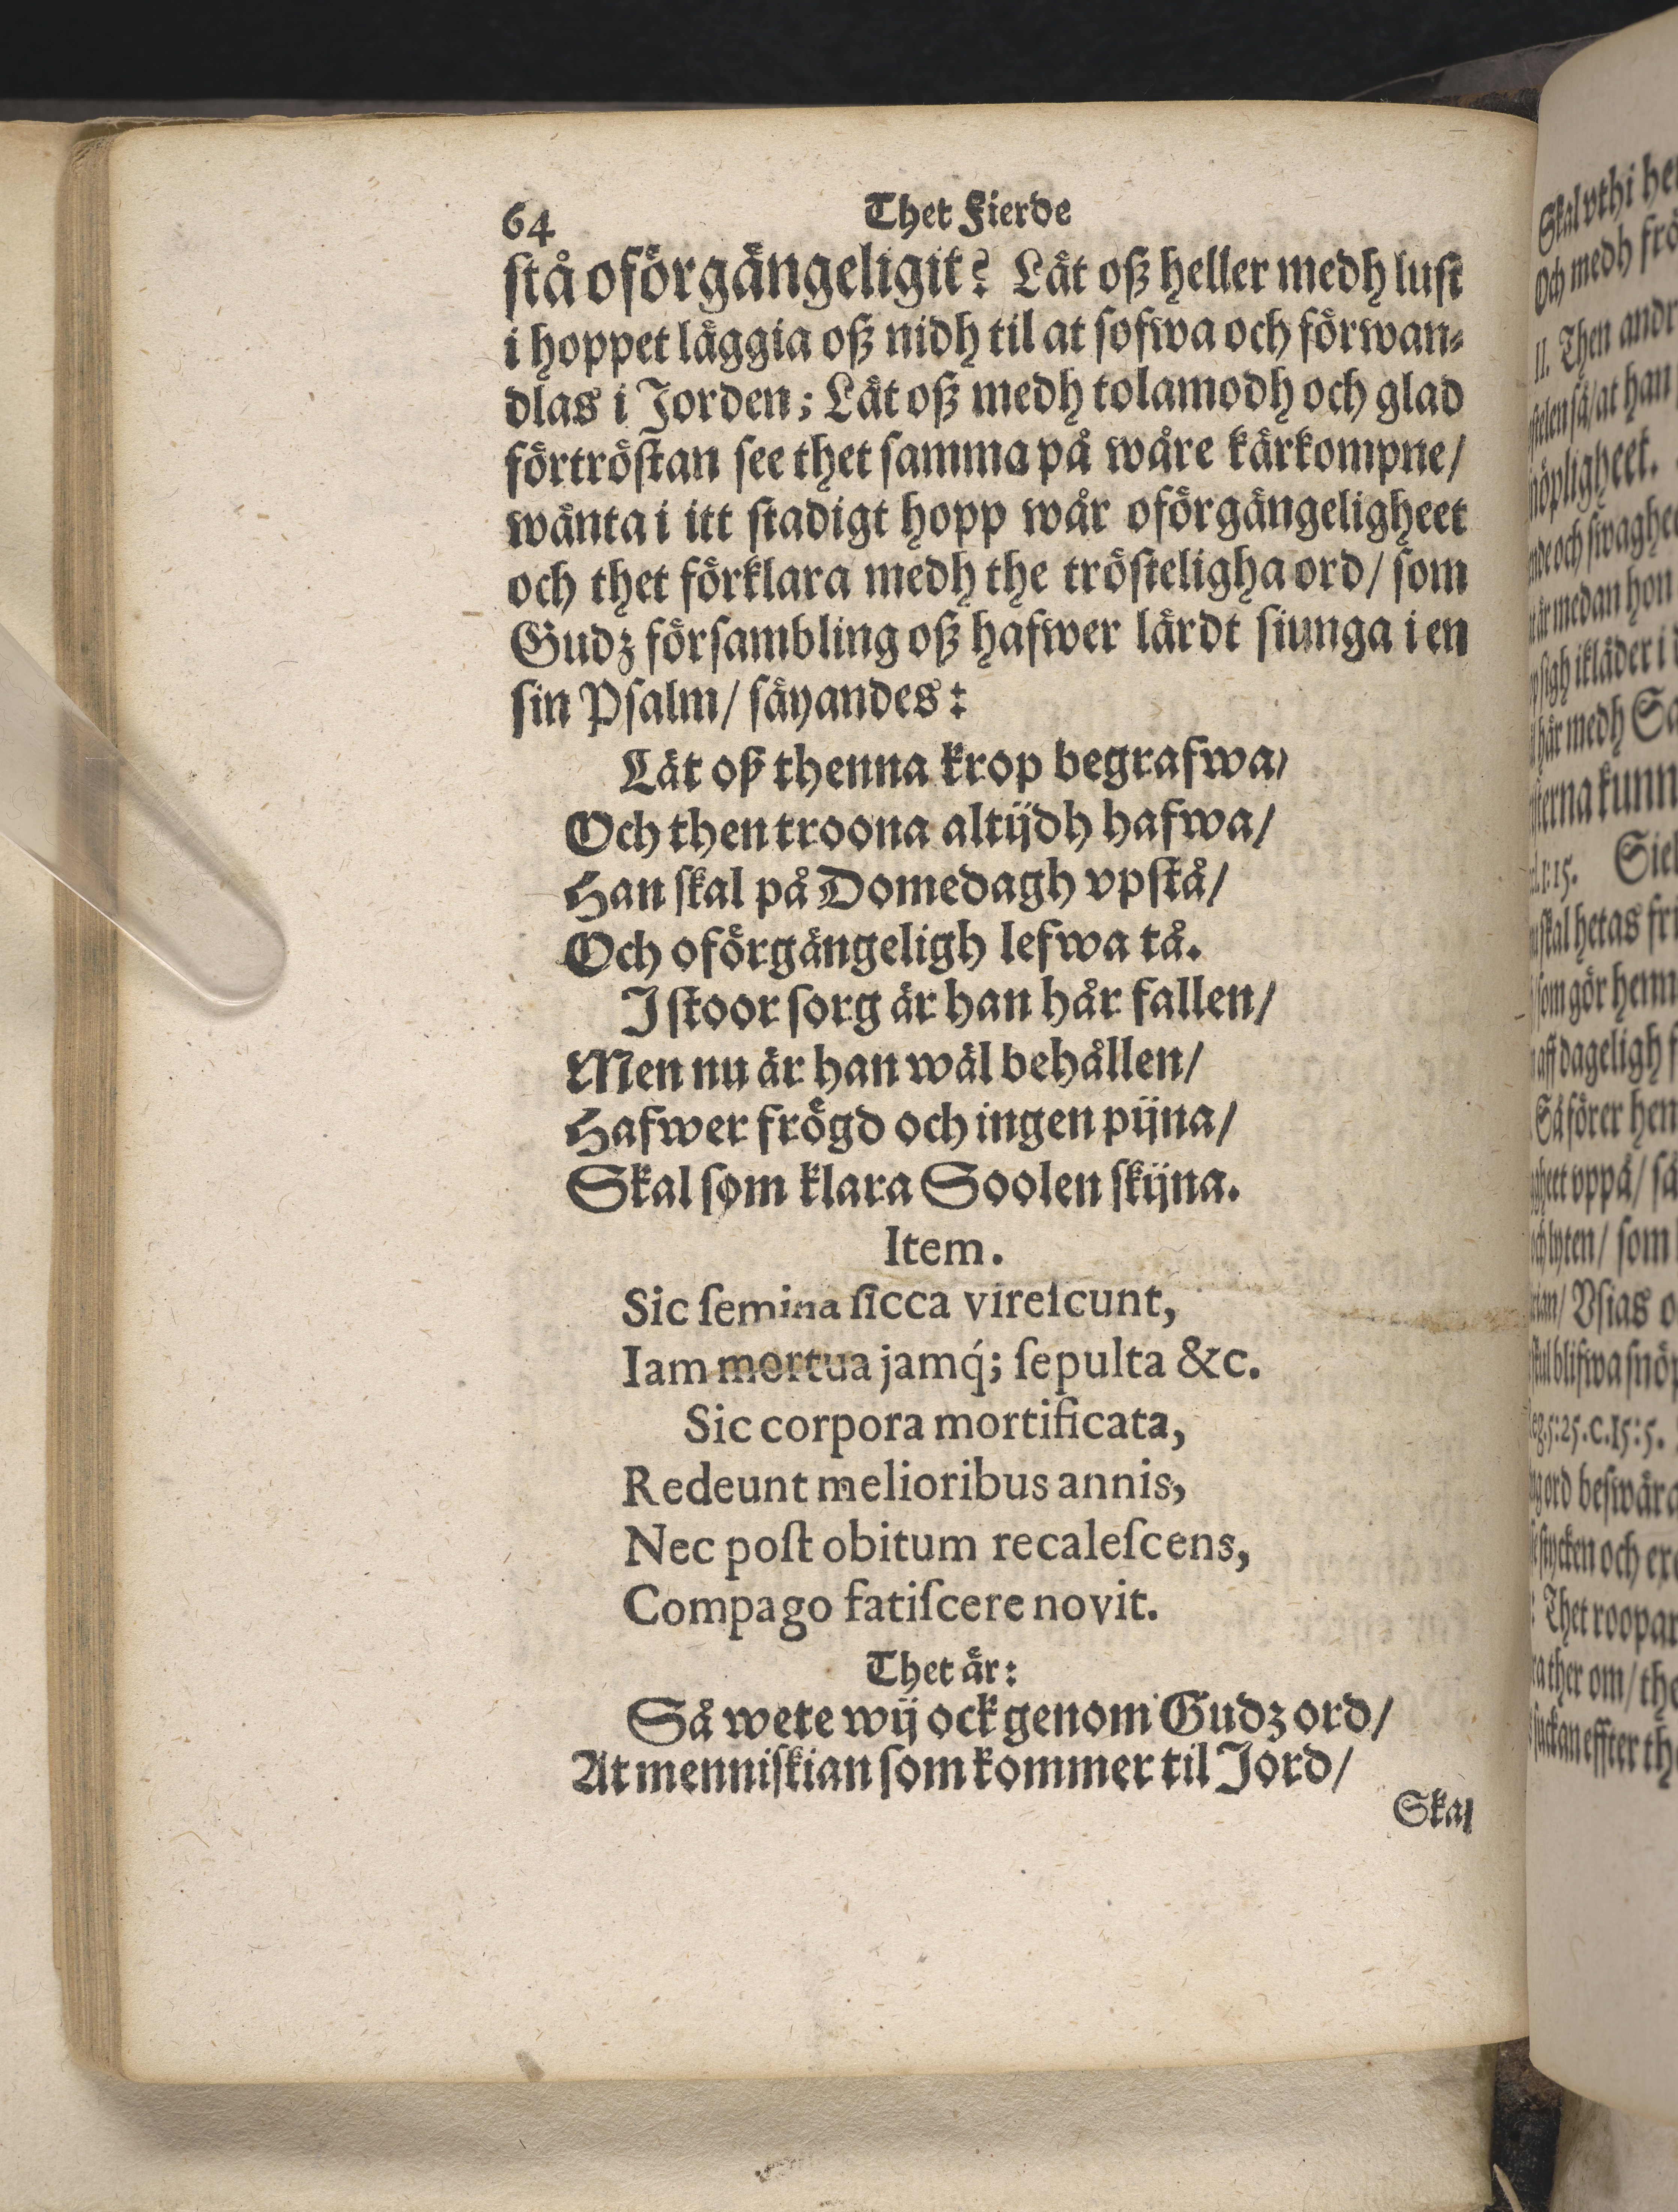 64 Thet Fierde
ſtå oförgängeligit? Lät oß heller medh luſt
i hoppet läggia oß nidh til at ſofwa och förwan⸗
dlas i Jorden; Lät oß medh tolamodh och glad
förtröſtan ſee thet ſamma på wåre kärkompne/
wänta i itt ſtadigt hopp wår oförgängeligheet
och thet förklara medh the tröſteligha ord/ ſom
Gudz förſambling oß hafwer lärdt ſiunga i en
ſin Pſalm/ ſäyandes:
Lät oß thenna krop begrafwa/
Och then troona altijdh hafwa/
Han ſkal på Domedagh vpſtå/
Och oförgängeligh lefwa tå.
I ſtoor ſorg är han här fallen/
Men nu är han wäl behållen/
Hafwer frögd och ingen pijna/
Skal ſom klara Soolen ſkijna.
Item.
Sic ſemina ſicca vireſcunt,
Iam mortua jamq́; ſepulta &c.
Sic corpora mortificata,
Redeunt melioribus annis,
Nec poſt obitum recaleſcens,
Compago fatiſcere novit.
Thet är:
Så wete wij ock genom Gudz ord/
At menniſkian ſom kommer til Jord/
Skal